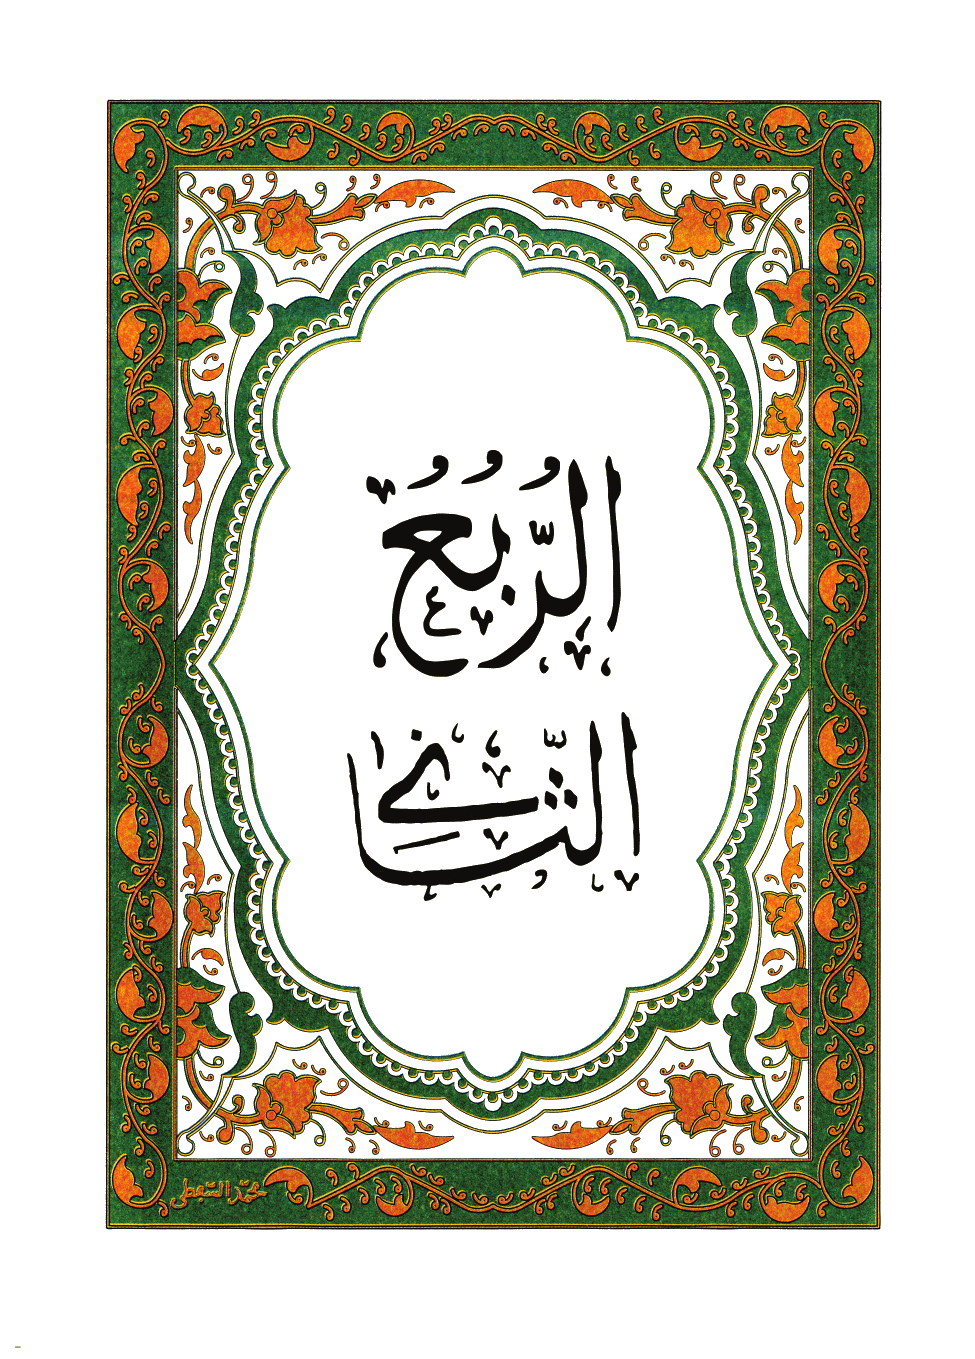 الرُّبُعُ
الثَّانِي
محمد